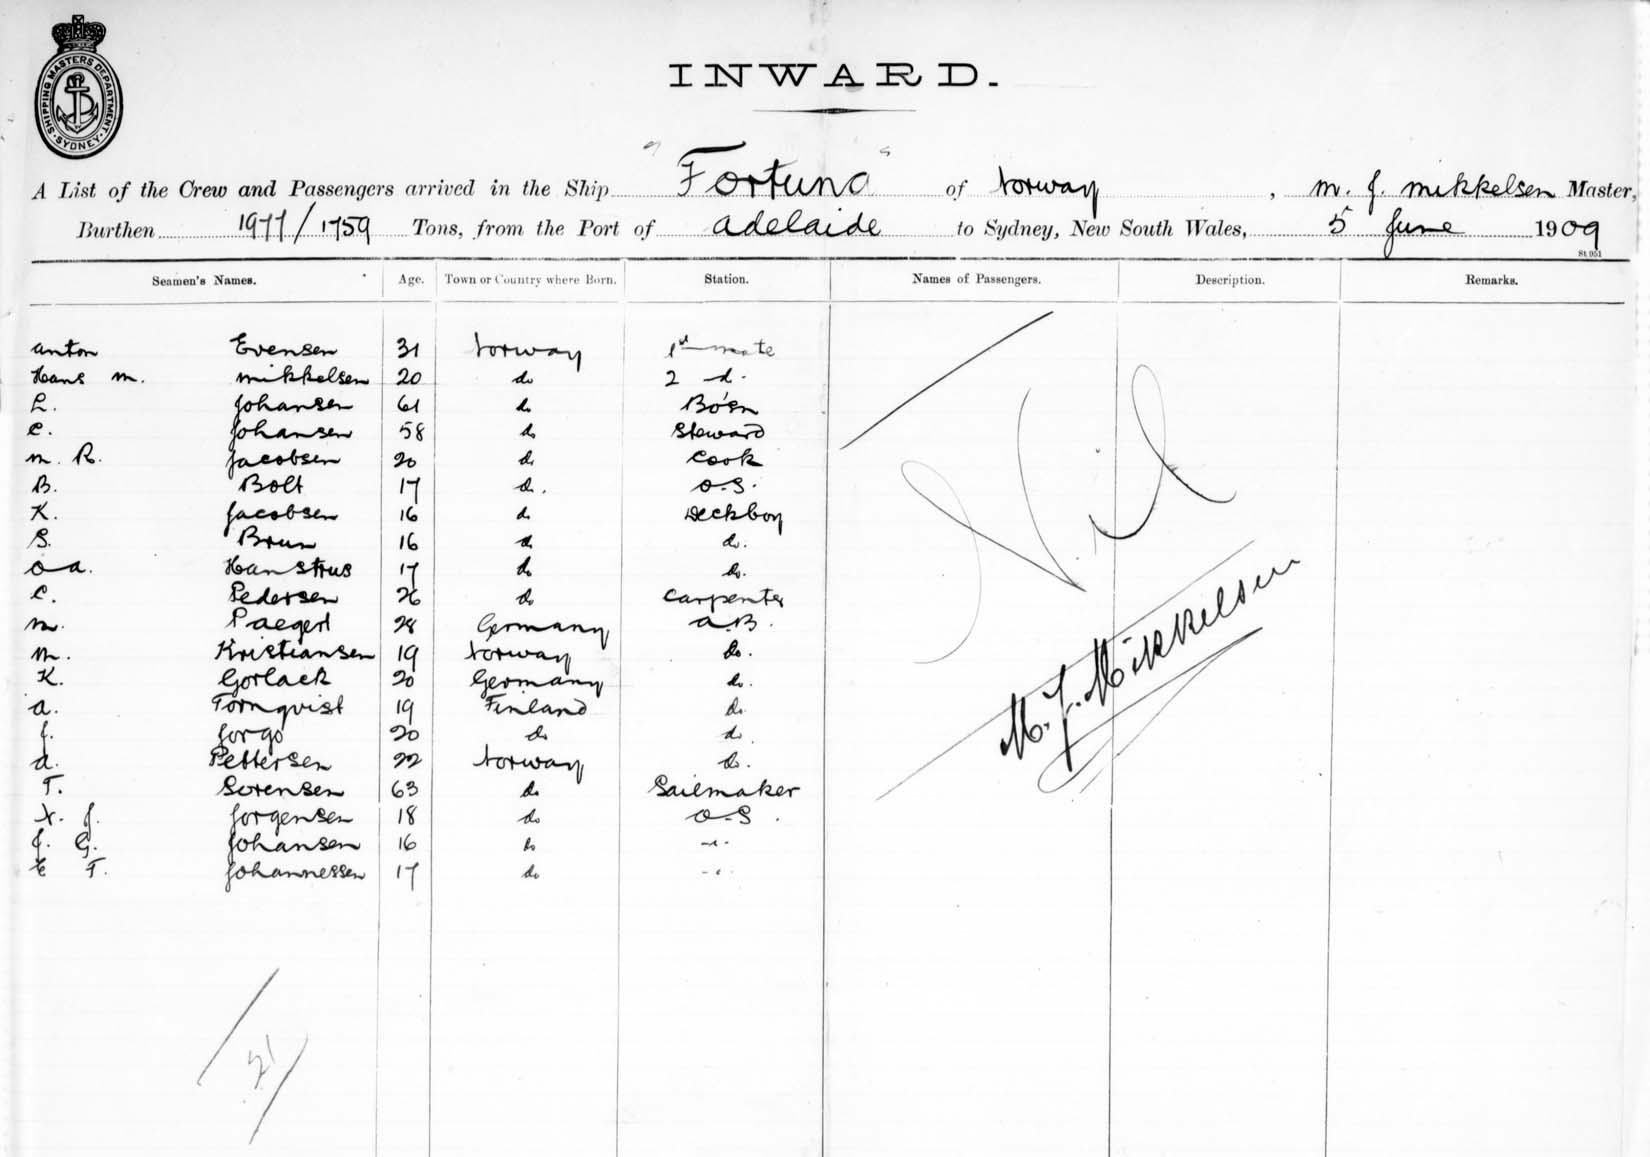 SHIPPING MASTERS DEPARTMENT · SYDNEY ·
INWARD.
A List of the Crew and Passengers arrived in the Ship "Fortuna" of Norway, M. J. Mikkelsen Master,
Burthen 1977/1759 Tons, from the Port of Adelaide to Sydney, New South Wales, 5 June 1909
St. 951
Seamen's Names. Age. Town or Country where Born. Station. Names of Passengers. Description. Remarks.
Anton Evensen 31 Norway 1st mate
Hans M. Mikkelsen 20 do 2 d.
L. Johansen 61 do Bo'sn
C. Johansen 58 do Steward
M. R. Jacobsen 20 do Cook
B. Bolt 17 do. O.S.
K. Jacobsen 16 do Deckboy
S. Brun 16 do do.
O A. Hanstrus 17 do do.
C. Pedersen 26 do Carpenter
M. Paegert 28 Germany A.B.
M. Kristiansen 19 Norway do.
K. Gorlack 20 Germany do.
A. Tornqvist 19 Finland do
J. Jorgo 20 do do.
A. Pettersen 22 Norway do.
T. Sorensen 63 do Sailmaker
N. J. Jorgensen 18 do O.S.
J. G. Johansen 16 do -"-
E T. Johannessen 17 do -"-
Nil
M. J. Mikkelsen
21